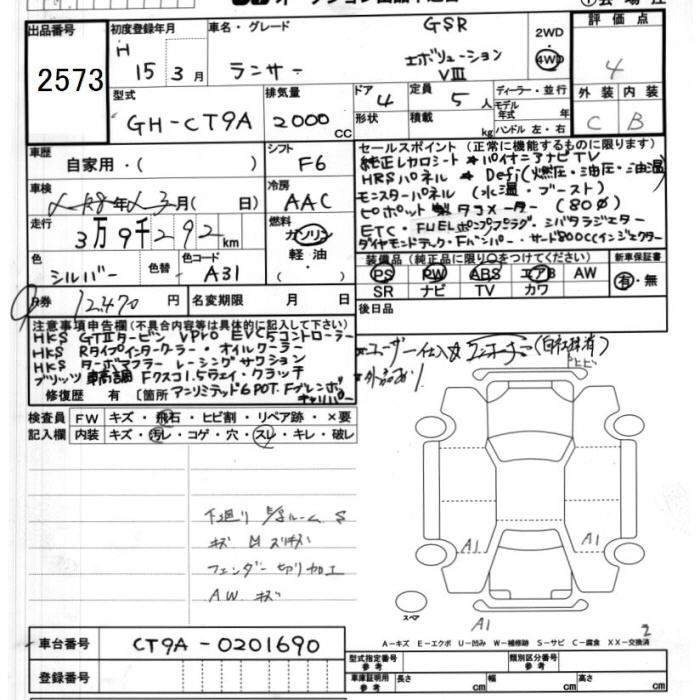 出品番号
2573
初度登録年月
H
15 3月
車名・グレード
GSR
ランサー
エボリューション
VIII
2WD
4WD
評価点
4
型式
GH-CT9A
排気量
2000 cc
ドア 4
形状
定員 5 人
積載 kg
ディーラー・並行
モデル年式 年
ハンドル 左・右
外装 内装
C B
車歴
自家用・( )
シフト
F6
車検
年 月( 日)
冷房
AAC
走行
3万9千292km
燃料
ガソリン
軽油
( )
色
シルバー
色替
色コード
A31
セールスポイント(正常に機能するものに限ります)
純正レカロシート * パイオニアナビTV
HRSパネル * Defi(燃圧・油圧・油温)
モンスターパネル (水温・ブースト)
ピボット製タコメーター (80φ)
ETC・FUELポンプ
ダイヤモンドテック・Fバンパー・サード800ccインジェクター
装備品(純正品に限り○をつけてください)
PS PW ABS エアB AW
SR ナビ TV カワ
新車保証書
有・無
券 12,470 円
名変期限 月 日
後日品
注意事項申告欄(不具合内容等は具体的に記入して下さい)
HKS GTⅡタービン VPro EVC5コントローラー
HKS Rタイプインタークーラー・オイルクーラー
HKS ターボマフラー レーシングサクション
ブリッツ車高調 Fクスコ1.5ウェイ・クラッチ
修復歴 有 [箇所 アンリミテッド6POT.Fブレンボキャリパー
検査員記入欄
FW キズ・飛石・ヒビ割・リペア跡・×要
内装 キズ・汚レ・コゲ・穴・スレ・キレ・破レ
下廻り ルーム S
キズ 凹 スリキズ
フェンダー切り加工
A.W. キズ
A1
A1
A1
スペア
2
A-キズ E-エクボ U-凹み W-補修跡 S-サビ C-腐食 XX-交換済
車台番号
CT9A-0201690
登録番号
型式指定番号 参考
類別区分番号 参考
車庫証明用 参考
長さ cm
幅 cm
高さ cm